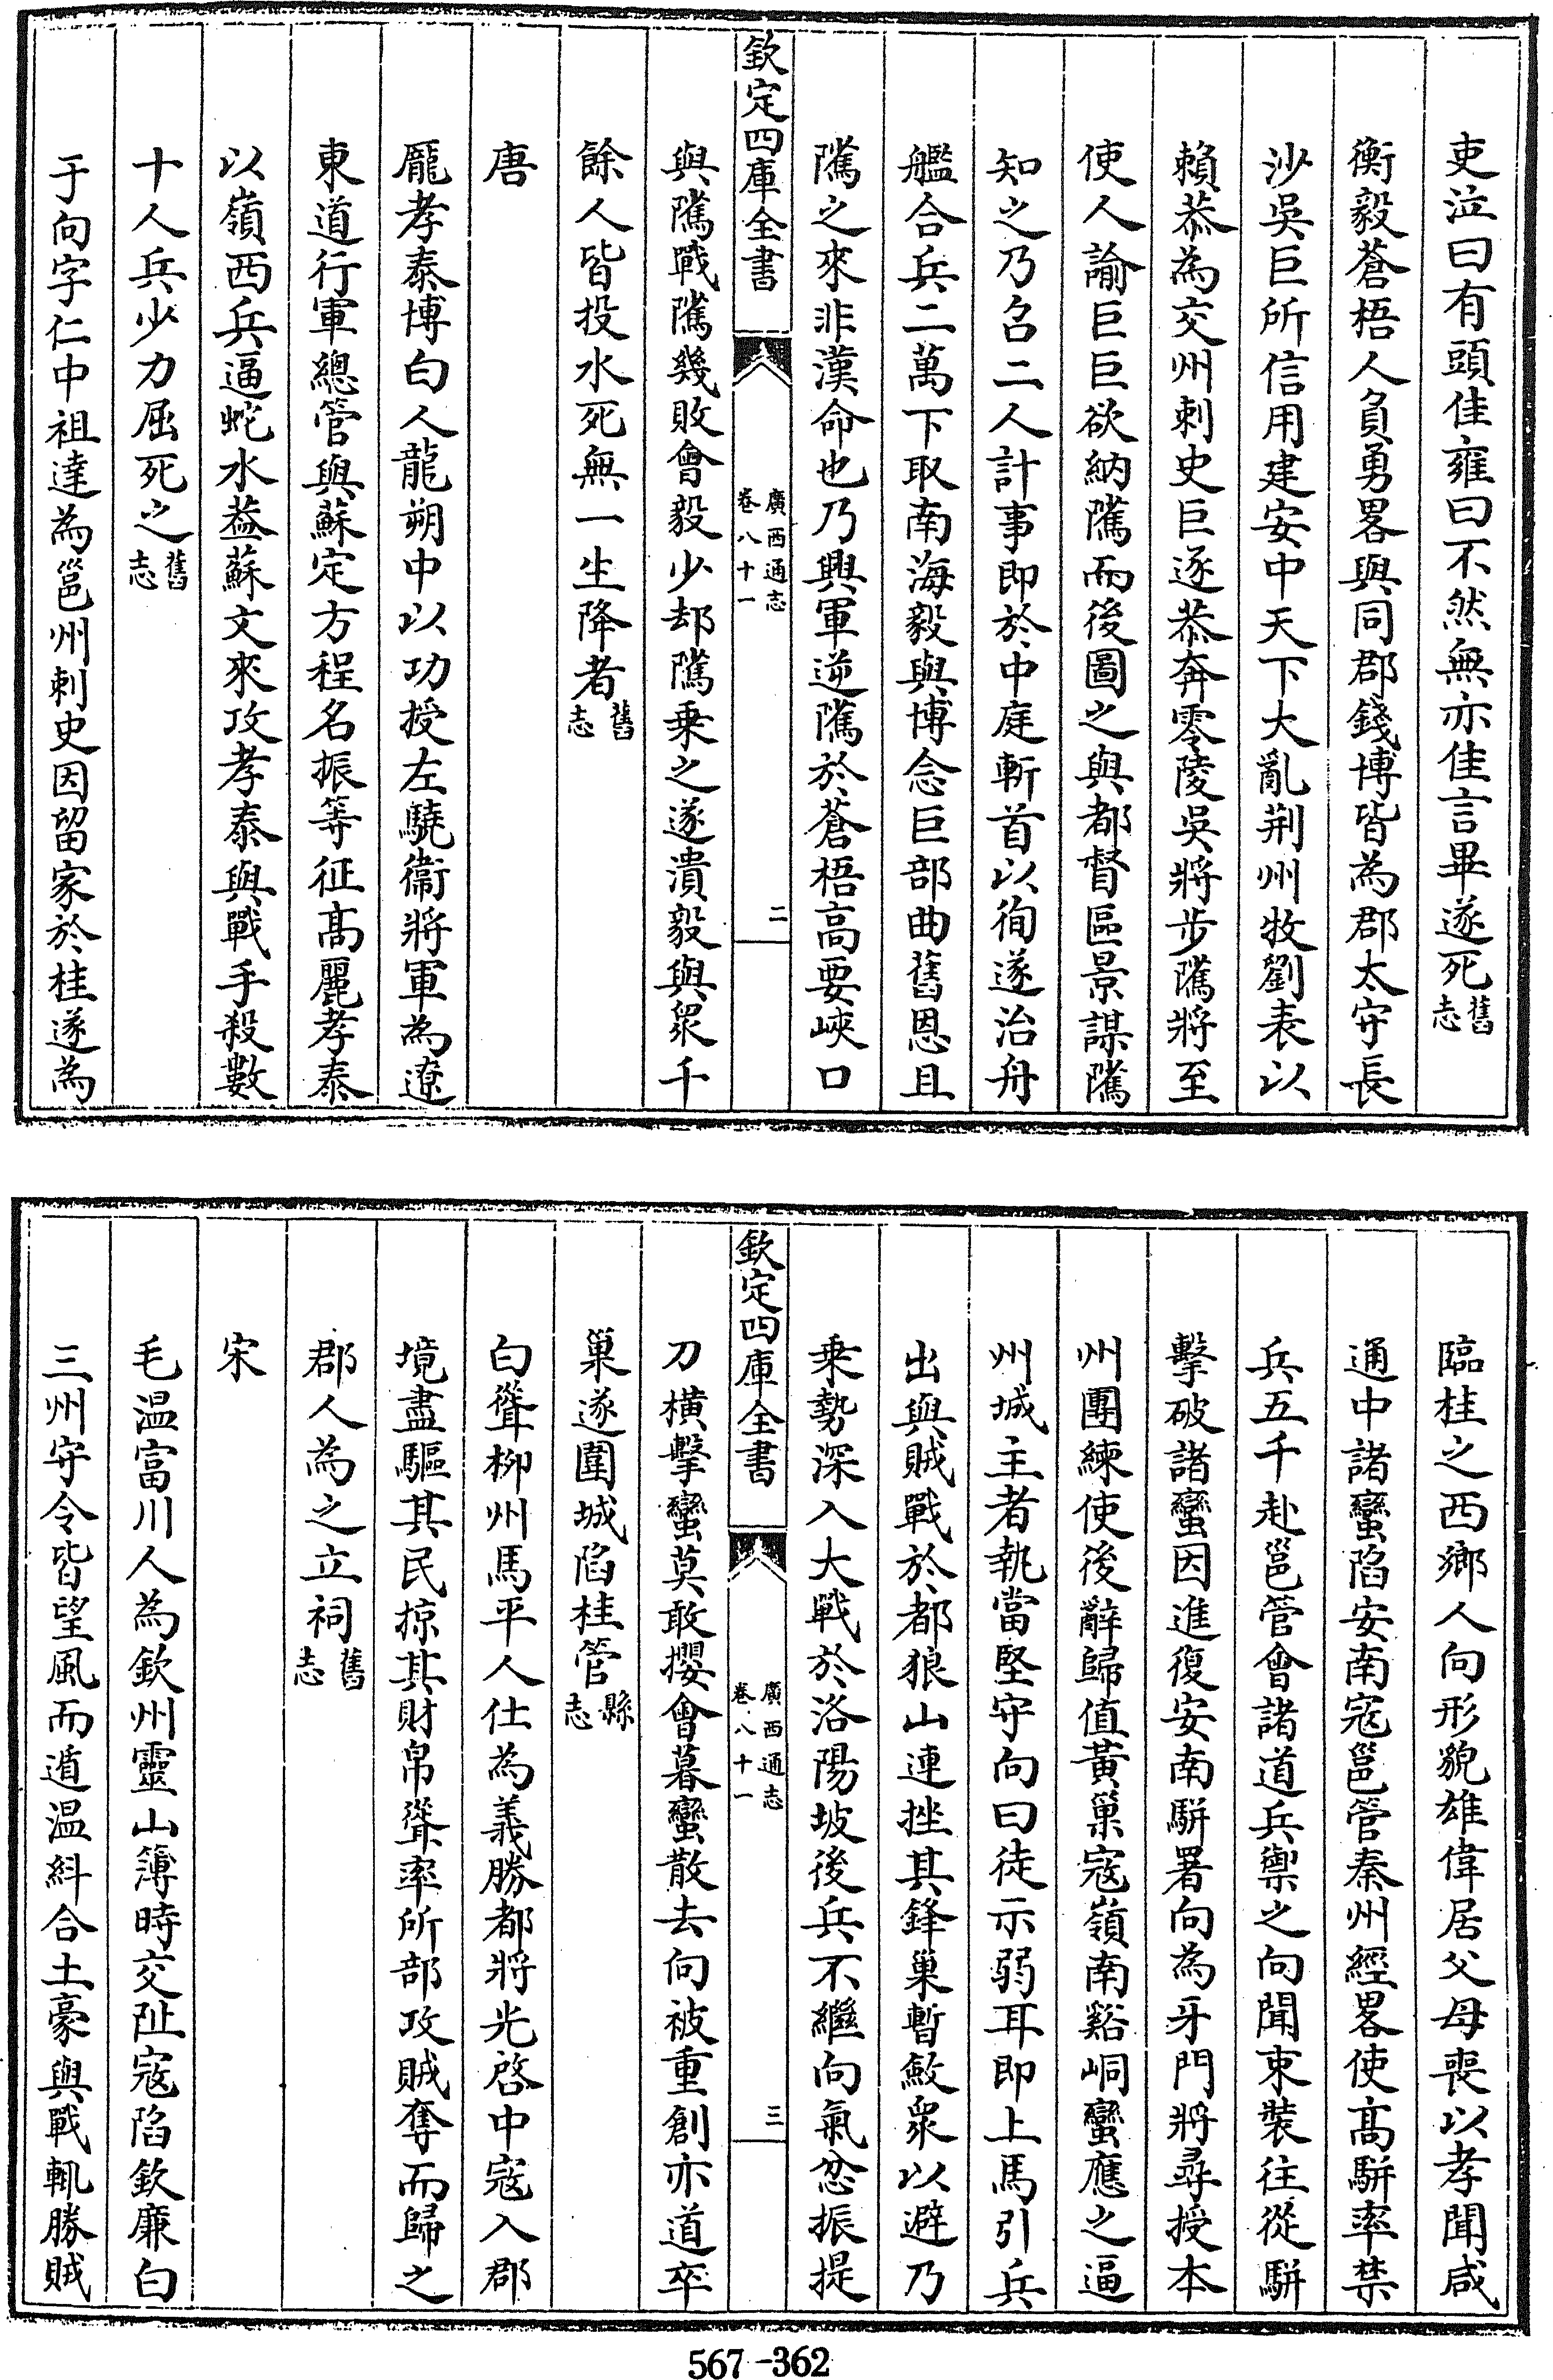 吏泣曰有頭佳雍曰不然無亦佳言畢遂死舊志
衡毅蒼梧人負勇畧與同郡錢博皆為郡太守長
沙吳巨所信用建安中天下大亂荆州牧劉表以
賴恭為交州刺史巨逐恭奔零陵吳將步隲將至
使人諭巨巨欲納隲而後圖之與都督區景謀隲
知之乃召二人計事即於中庭斬首以徇遂治舟
艦合兵二萬下取南海毅與博念巨部曲舊恩且
隲之來非漢命也乃興軍逆隲於蒼梧高要峽口
欽定四庫全書
廣西通志
卷八十一
二
與隲戰隲幾敗會毅少却隲乗之遂潰毅與衆千
餘人皆投水死無一生降者舊志
唐
龎孝泰博白人龍朔中以功授左驍衞將軍為遼
東道行軍總管與蘇定方程名振等征髙麗孝泰
以嶺西兵逼蛇水葢蘇文來攻孝泰與戰手殺數
十人兵少力屈死之舊志
于向字仁中祖達為邕州刺史因留家於桂遂為
臨桂之西鄉人向形貌雄偉居父母喪以孝聞咸
通中諸蠻陷安南寇邕管秦州經畧使髙駢率禁
兵五千赴邕管會諸道兵禦之向聞束裝往從駢
擊破諸蠻因進復安南駢署向為牙門將尋授本
州團練使後辭歸值黃巢寇嶺南谿峒蠻應之逼
州城主者執當堅守向曰徒示弱耳即上馬引兵
出與賊戰於都狼山連挫其鋒巢暫斂衆以避乃
乗勢深入大戰於洛陽坡後兵不繼向氣忿振提
欽定四庫全書
廣西通志
卷八十一
三
刀橫擊蠻莫敢攖會暮蠻散去向被重創亦道卒
巢遂圍城陷桂管縣志
白聳柳州馬平人仕為義勝都將光啓中寇入郡
境盡驅其民掠其財帛聳率所部攻賊奪而歸之
郡人為之立祠舊志
宋
毛温富川人為欽州靈山簿時交阯寇陷欽廉白
三州守令皆望風而遁温糾合土豪與戰輒勝賊
567-362